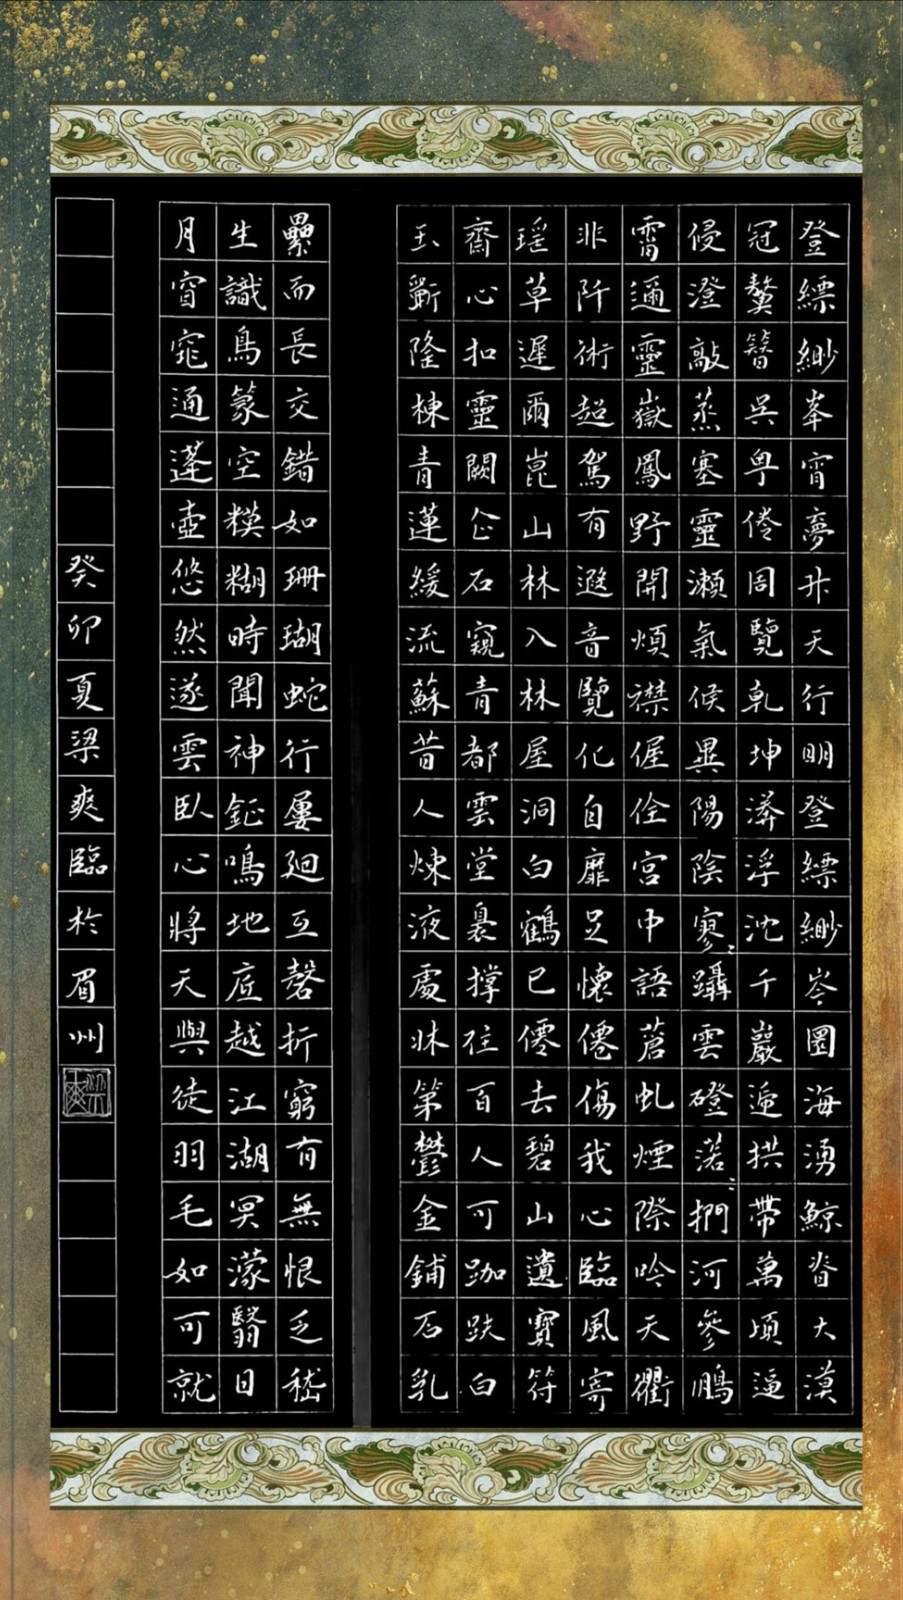 登縹緲峯宵夢升天行明登縹緲岑圍海湧鯨脊大漠
冠鼇簪吳粵倦周覽乾坤漭浮沈千巖遞拱帶萬頃逼
侵澄敲蒸塞靈瀬氣候異陽陰寥〻躡雲磴漠〻捫河參鵬
霄通靈嶽鳳野開煩襟偓佺宮中語蒼虬煙際吟天衢
非阡術超駕有遐音覽化自靡足懷僊傷我心臨風寄
瑶草遲爾崑山林入林屋洞白鶴已僊去碧山遺寶符
齋心扣靈闕企石窺青都雲堂裊撑住百人可跏趺白
玉斲隆棟青蓮緩流蘇昔人煉液處牀第鬱金鋪石乳
纍而長交錯如珊瑚蛇行屢廻互磬折窮有無恨乏嵇
生識鳥篆空糢糊時聞神鉦鳴地底越江湖冥濛翳日
月窅窕通蓬壺悠然遂雲臥心將天與徒羽毛如可就
癸卯夏梁爽臨於眉州
梁爽